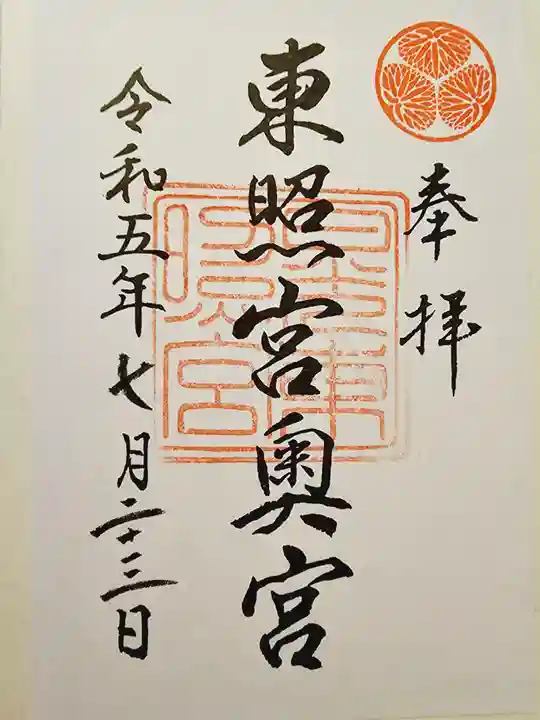 奉拝
東照宮奥宮
令和五年七月二十三日